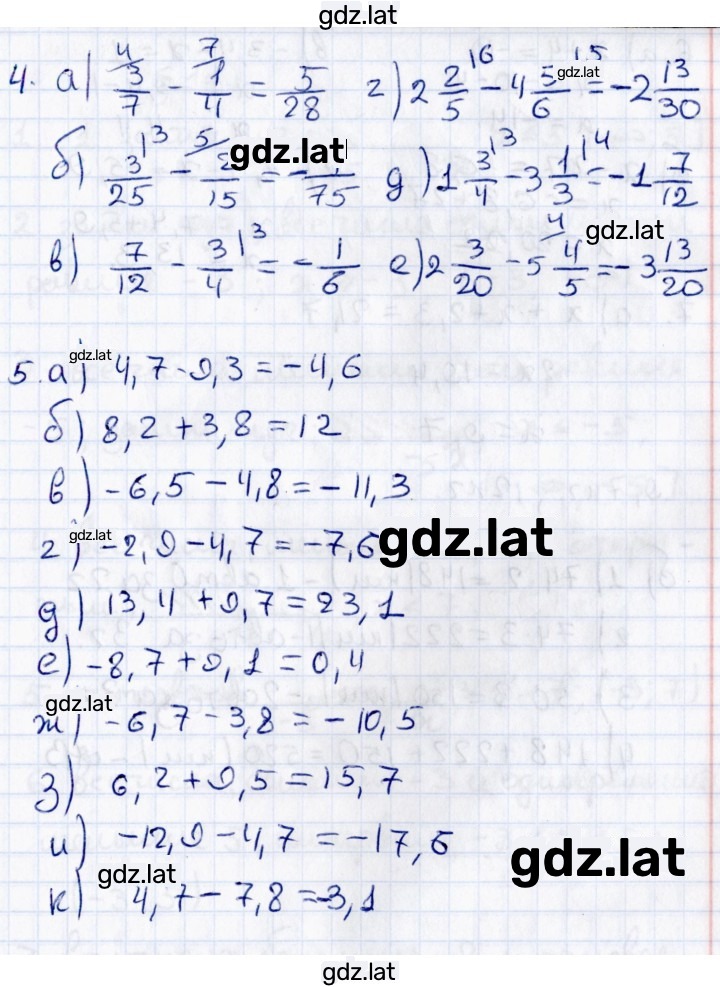 gdz.lat
4. а) 3/7 ⁴ - 1/4 ⁷ = 5/28 г) 2 2/5 ¹⁶ - 4 5/6 ¹⁵ = -2 13/30
gdz.lat
б) 3/25 ¹³ - /15 ⁵ = - /75 д) 1 3/4 ¹³ - 3 1/3 ¹⁴ = -1 7/12
gdz.lat
в) 7/12 - 3/4 ¹³ = - 1/6 е) 2 3/20 - 5 4/5 ⁴ = -3 13/20
gdz.lat
5. а) 4,7 - 9,3 = -4,6
gdz.lat
б) 8,2 + 3,8 = 12
в) -6,5 - 4,8 = -11,3
г) -2,9 - 4,7 = -7,6
gdz.lat
gdz.lat
д) 13,4 + 9,7 = 23,1
е) -8,7 + 9,1 = 0,4
gdz.lat
ж) -6,7 - 3,8 = -10,5
з) 6,2 + 9,5 = 15,7
и) -12,9 - 4,7 = -17,6
gdz.lat
gdz.lat
к) 4,7 - 7,8 = -3,1
gdz.lat